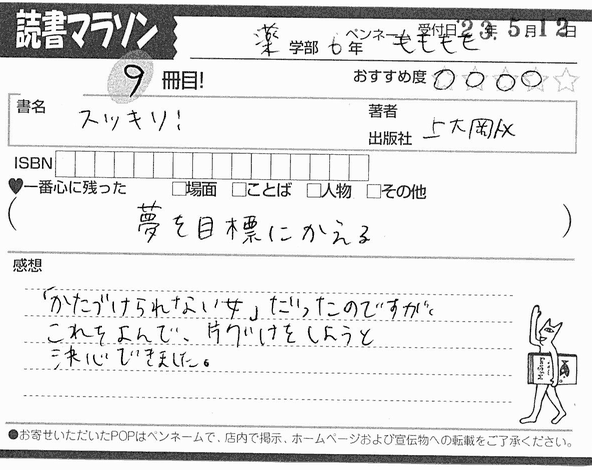 読書マラソン
薬学部6年 ペンネーム ももももも 受付日'23年5月12日
9冊目! おすすめ度 ○○○○☆
書名 スッキリ! 著者 上大岡
出版社
ISBN
♥一番心に残った □場面 □ことば □人物 □その他
(夢を目標にかえる)
感想
「かたづけられない女」だったのですが、
これをよんで、片づけをしようと
決心できました。
●お寄せいただいたPOPはペンネームで、店内で掲示、ホームページおよび宣伝物への転載をご了承ください。